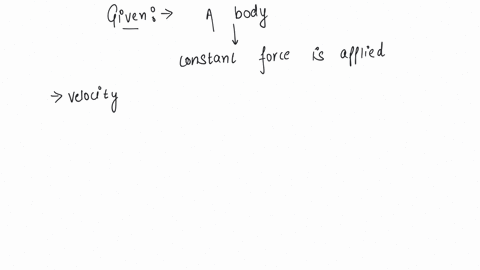 Given:→ A body
↓
constant force is applied
→ velocity